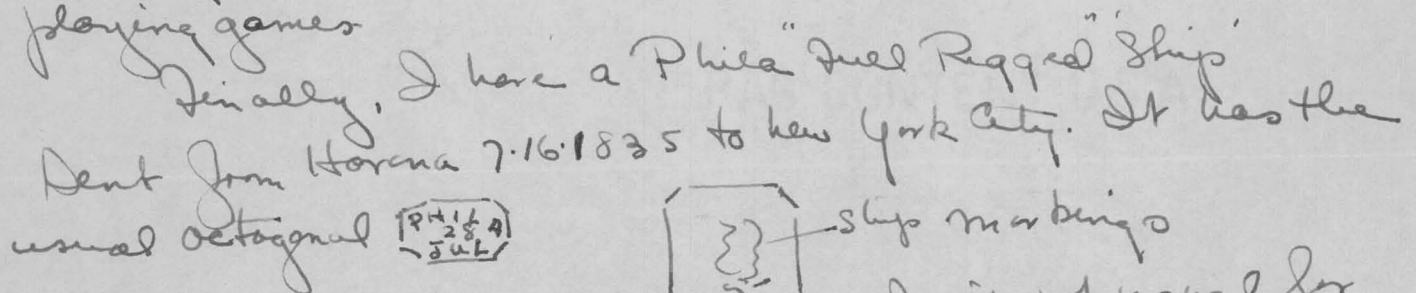 playing games
Finally, I have a Phila "Full Rigged" Ship
Sent from Havana 7.16.1835 to New York City. It has the
usual octagonal PHILA
28
JUL
ship markings
for